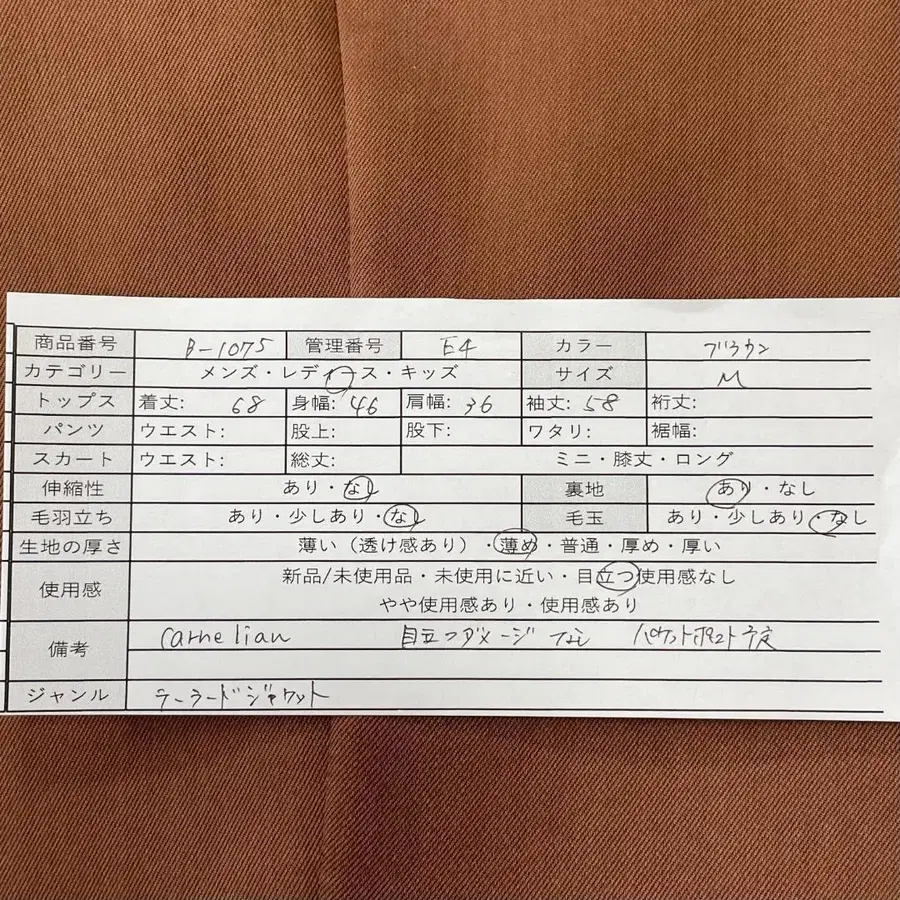 商品番号 B-1075 管理番号 E4 カラー ブラウン
カテゴリー メンズ・レディース・キッズ サイズ M
トップス 着丈: 68 身幅: 46 肩幅: 36 袖丈: 58 裄丈:
パンツ ウエスト: 股上: 股下: ワタリ: 裾幅:
スカート ウエスト: 総丈: ミニ・膝丈・ロング
伸縮性 あり・なし 裏地 あり・なし
毛羽立ち あり・少しあり・なし 毛玉 あり・少しあり・なし
生地の厚さ 薄い（透け感あり）・薄め・普通・厚め・厚い
使用感 新品/未使用品・未使用に近い・目立つ使用感なし
やや使用感あり・使用感あり
備考 carnelian 目立つダメージ なし
ジャンル テーラードジャケット